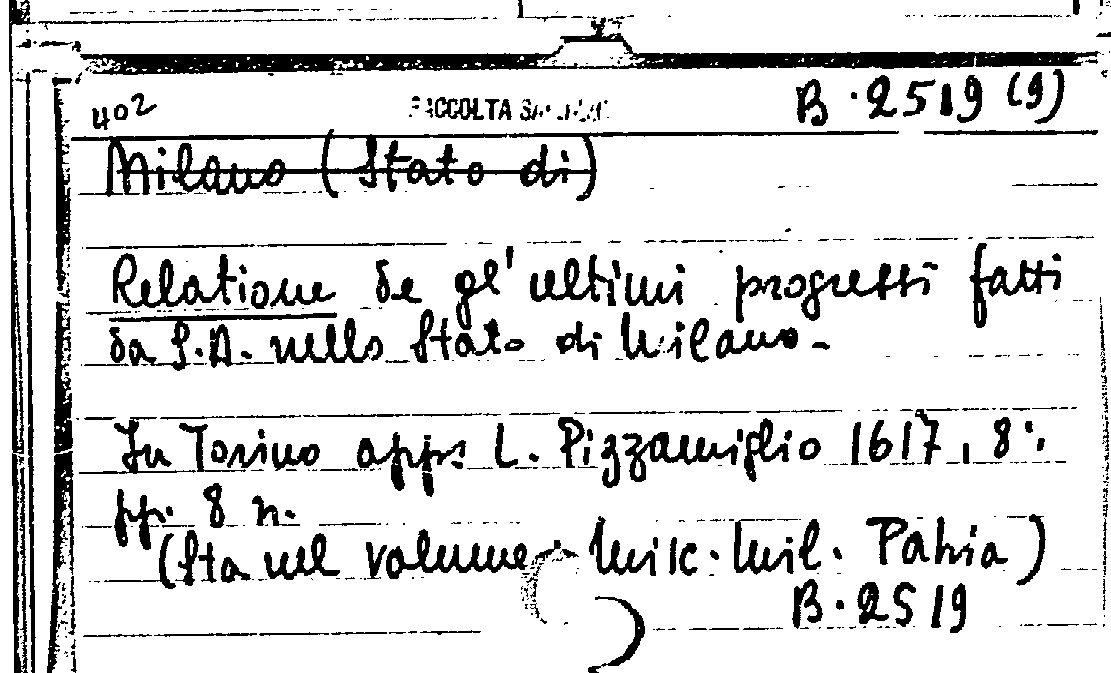 402 RACCOLTA B. 2519 (9)
Milano (Stato di)
Relatione de gl' ultimi progretti fatti
da S.A. nello Stato di Milano.-
In Torino apps L. Pizzamiglio 1617, 8°.
pp. 8 n.
(Sta nel volume Misc. Mil. Patria)
B. 2519